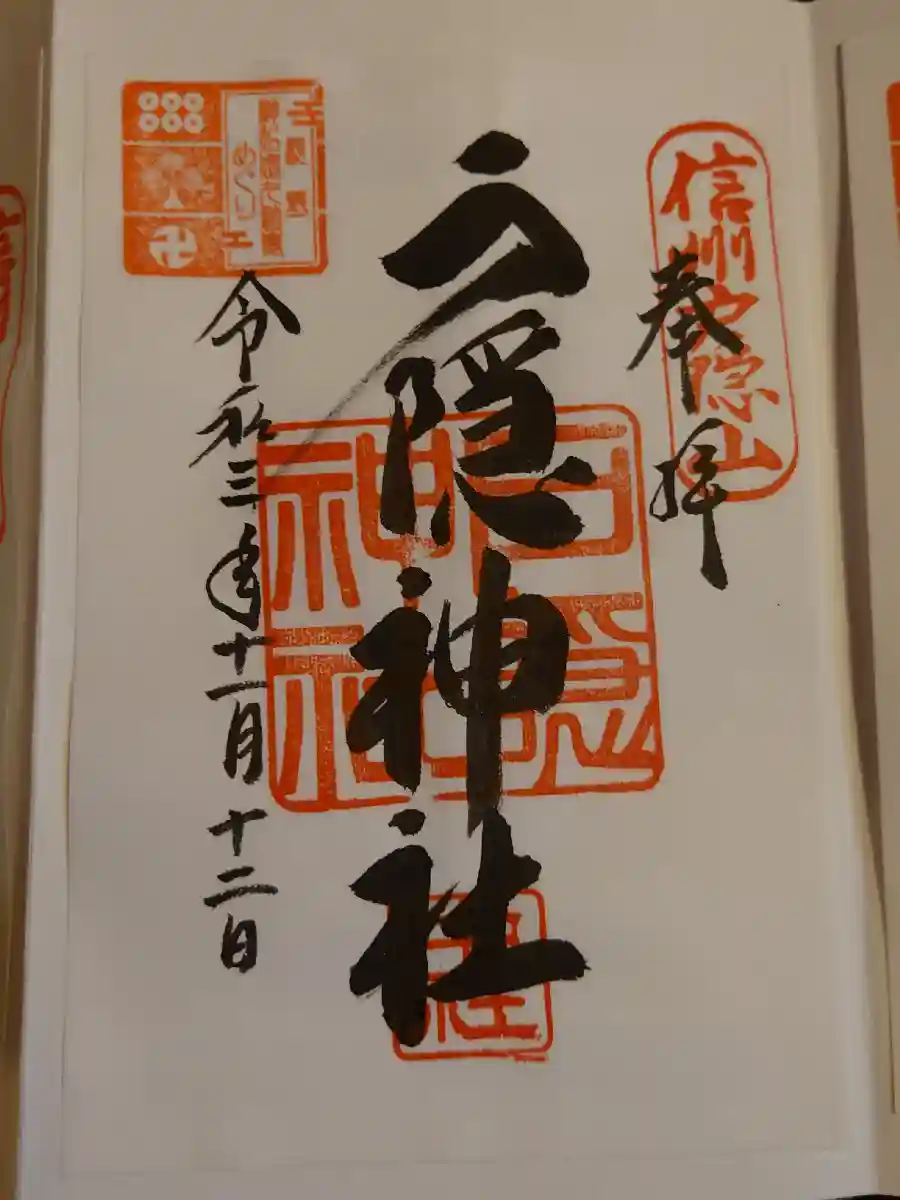 信州戸隠山
奉拝
戸隠神社
戸隠
神社
令和三年十一月十二日
めぐり